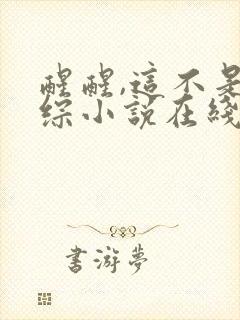 醒醒,這不是
綜小說在綫
書游夢